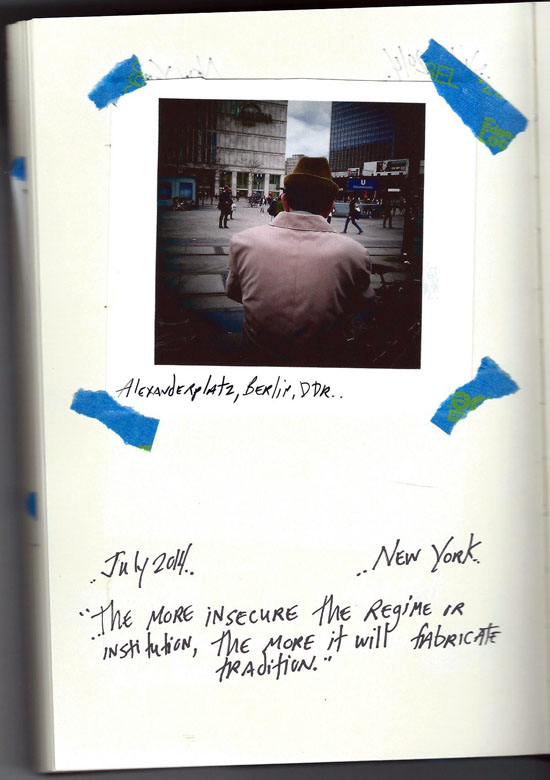 Alexanderplatz, Berlin, DDR..
July 2014.. .. New York..
"The more insecure the regime or
institution, the more it will fabricate
tradition."